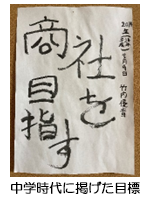 商社を
目指す
竹内優
中学時代に掲げた目標